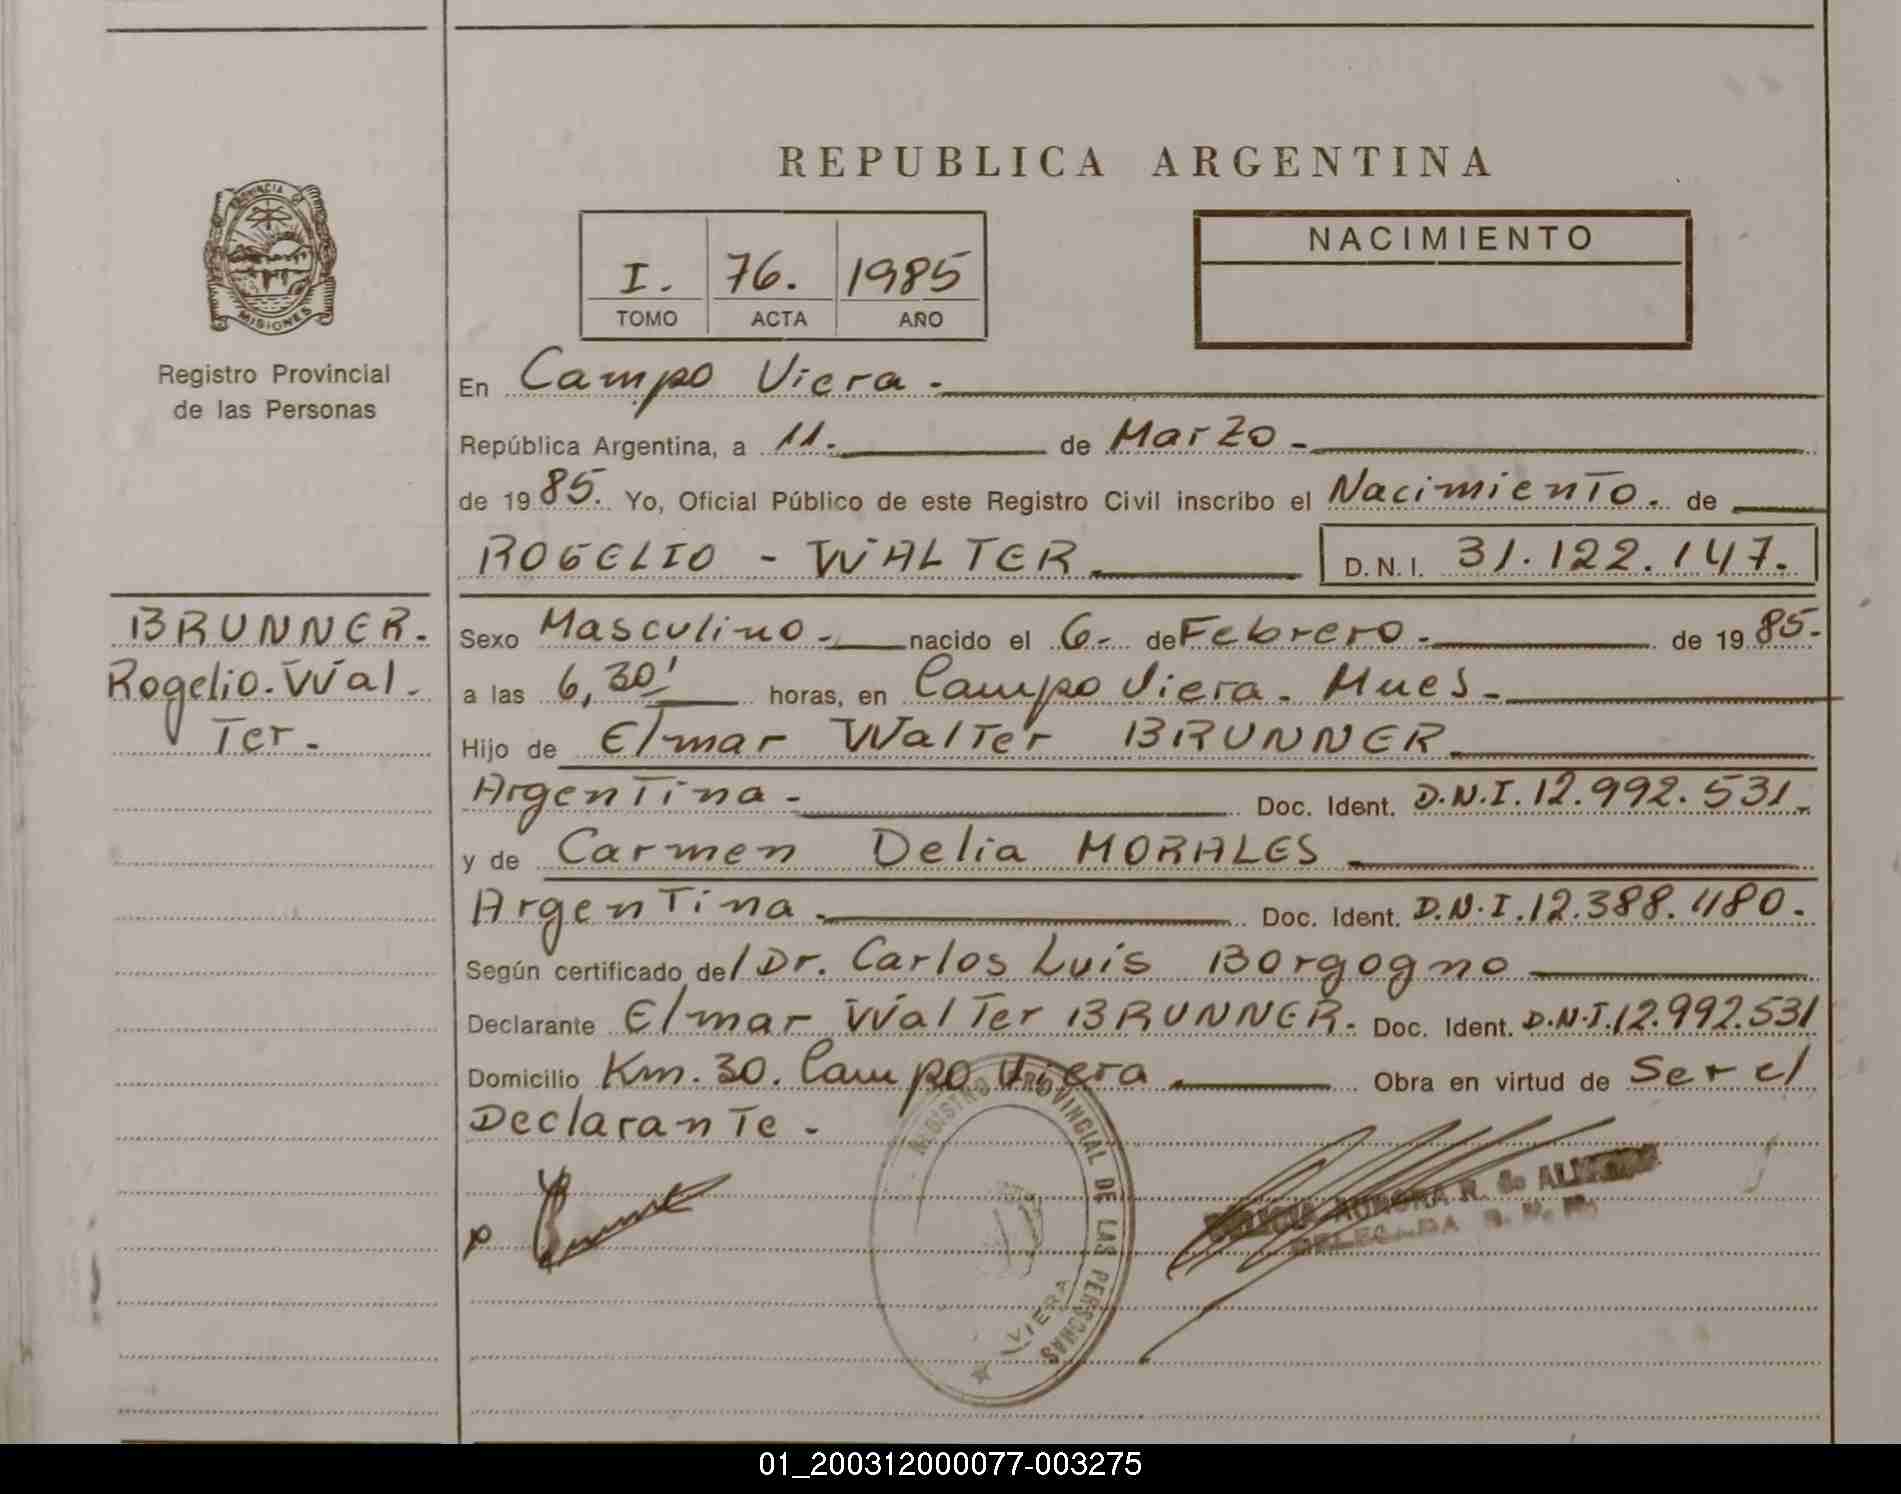 REPUBLICA ARGENTINA
PROVINCIA DE
MISIONES
Registro Provincial
de las Personas
I. 76. 1985
TOMO ACTA AÑO
NACIMIENTO
En Campo Viera.
República Argentina, a 11. de Marzo
de 1985. Yo, Oficial Público de este Registro Civil inscribo el Nacimiento. de
ROGELIO - WALTER D.N.I. 31.122.147.
BRUNNER.
Rogelio. Wal.
Ter.
Sexo Masculino. nacido el 6. de Febrero. de 1985.
a las 6,30' horas, en Campo Viera. Mnes.
Hijo de Elmar Walter BRUNNER
Argentina. Doc. Ident. D.N.I. 12.992.531.
y de Carmen Delia MORALES
Argentina. Doc. Ident. D.N.I. 12.388.480.
Según certificado del Dr. Carlos Luis Borgogno
Declarante Elmar Walter BRUNNER. Doc. Ident. D.N.I. 12.992.531
Domicilio Km. 30. Campo Viera Obra en virtud de Ser el
Declarante.
REGISTRO PROVINCIAL DE LAS PERSONAS
VIERA
AURORA R. de
DELEGADA
01_200312000077-003275